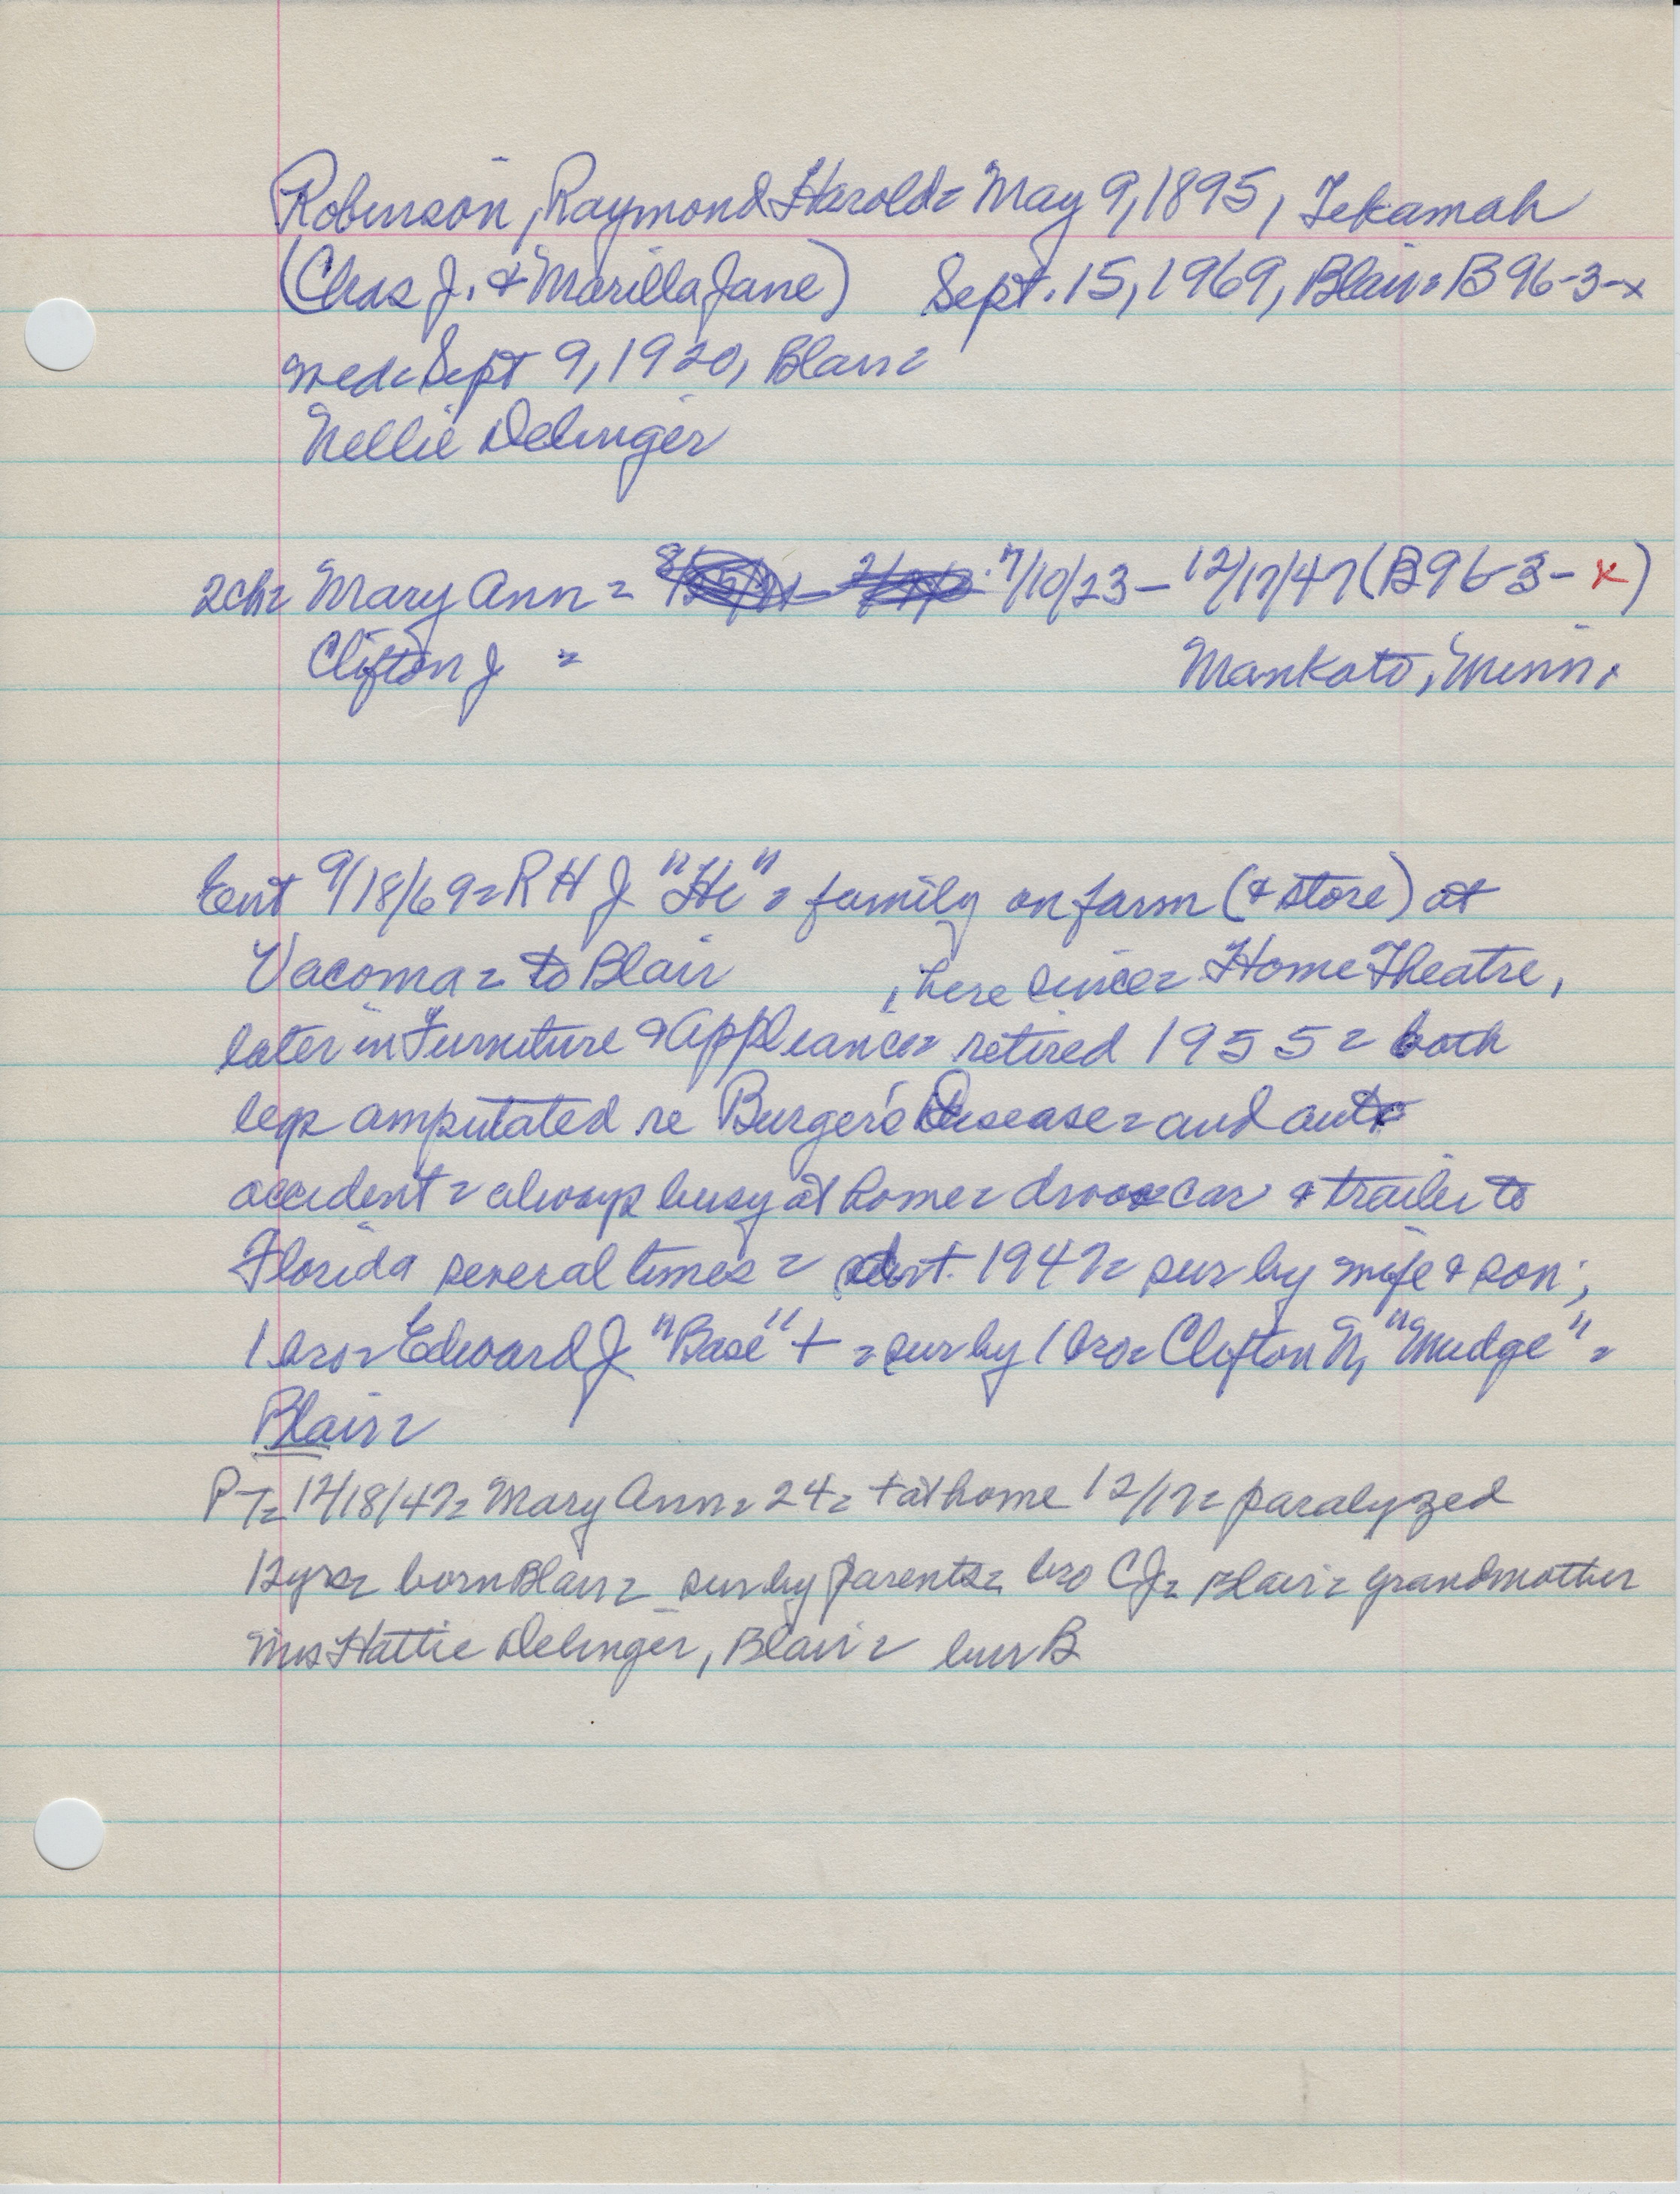 Robinson, Raymond Harold = May 9, 1895, Tekamah
(Chas J. & Marilla Jane) Sept. 15, 1969, Blair = B 96-3-x
med = Sept 9, 1920, Blair =
Nellie Delinger
2ch = Mary Ann = 7/10/23 - 12/17/47 (B96-3-x)
Clifton J = Mankato, Minn.
Ent 9/18/69 = R H J "Hi" = family on farm (& store) at
Vacoma = to Blair , here since = Home Theatre,
later in Furniture & Appliance = retired 1955 = both
legs amputated re Burger's Disease = and auto
accident = always busy at home = drove car & trailer to
Florida several times = 1947 = sur by wife & son;
1 bro = Edward J "Base" + = sur by 1 bro = Clifton N, "Mudge" =
Blair =
PT = 12/18/47 = Mary Ann = 24 = + at home 12/17 = paralyzed
12yrs = born Blair = sur by parents = bro CJ = Blair = grandmother
Mrs Hattie Delinger, Blair = bur B